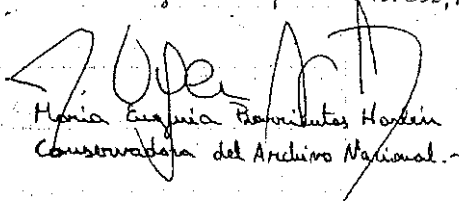 María Eugenia Barrientos Harbin
Conservadora del Archivo Nacional.-